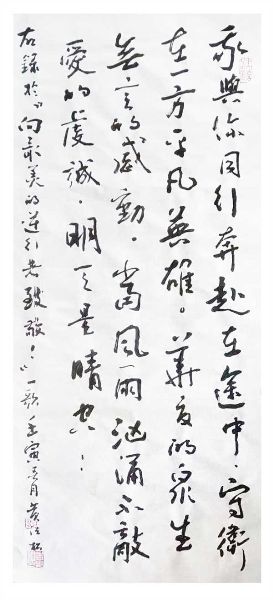 我與你同行奔赴在途中．守衛
在一方平凡英雄。華夏的衆生
無言的感動．當風雨洶涌不敵
愛的虔誠．明天是晴空！
右錄於“向最美的逆行者致敬！”一歌壬寅月黄松